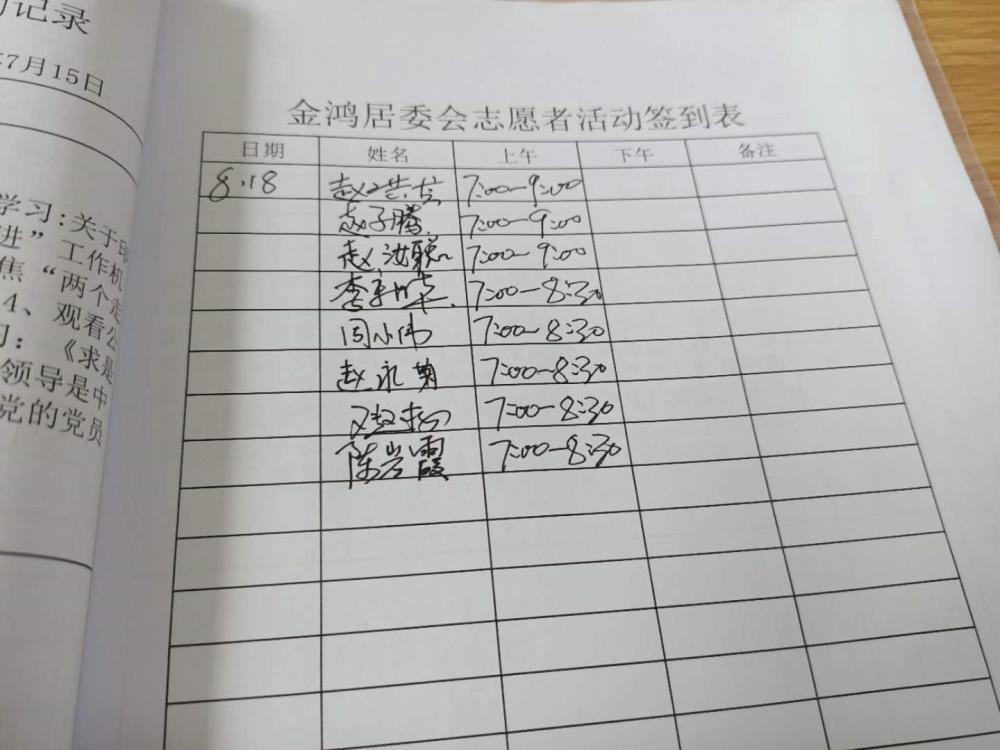 记录
7月15日
学习:关于
进”工作机
焦“两个
4、观看公
习:《求是
领导是中
党的党员
金鸿居委会志愿者活动签到表
日期 姓名 上午 下午 备注
8.18 赵 7:00-9:00
赵子腾 7:00-9:00
赵汝聪 7:00-9:00
李 7:00-8:30
闫小伟 7:00-8:30
赵永菊 7:00-8:30
7:00-8:30
陈岩霞 7:00-8:30